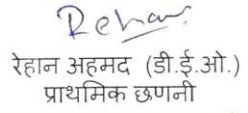 Rehan
रेहान अहमद (डी.ई.ओ.)
प्राथमिक छणनी